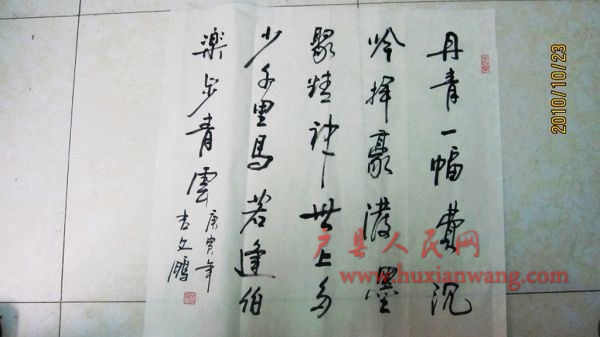 丹青一幅費沉
吟揮豪潑墨
聚精神世上多
少千里馬若逢伯
樂步青雲
庚寅年
吉文鵬
户县人民网
www.huxianwang.com
2010/10/23